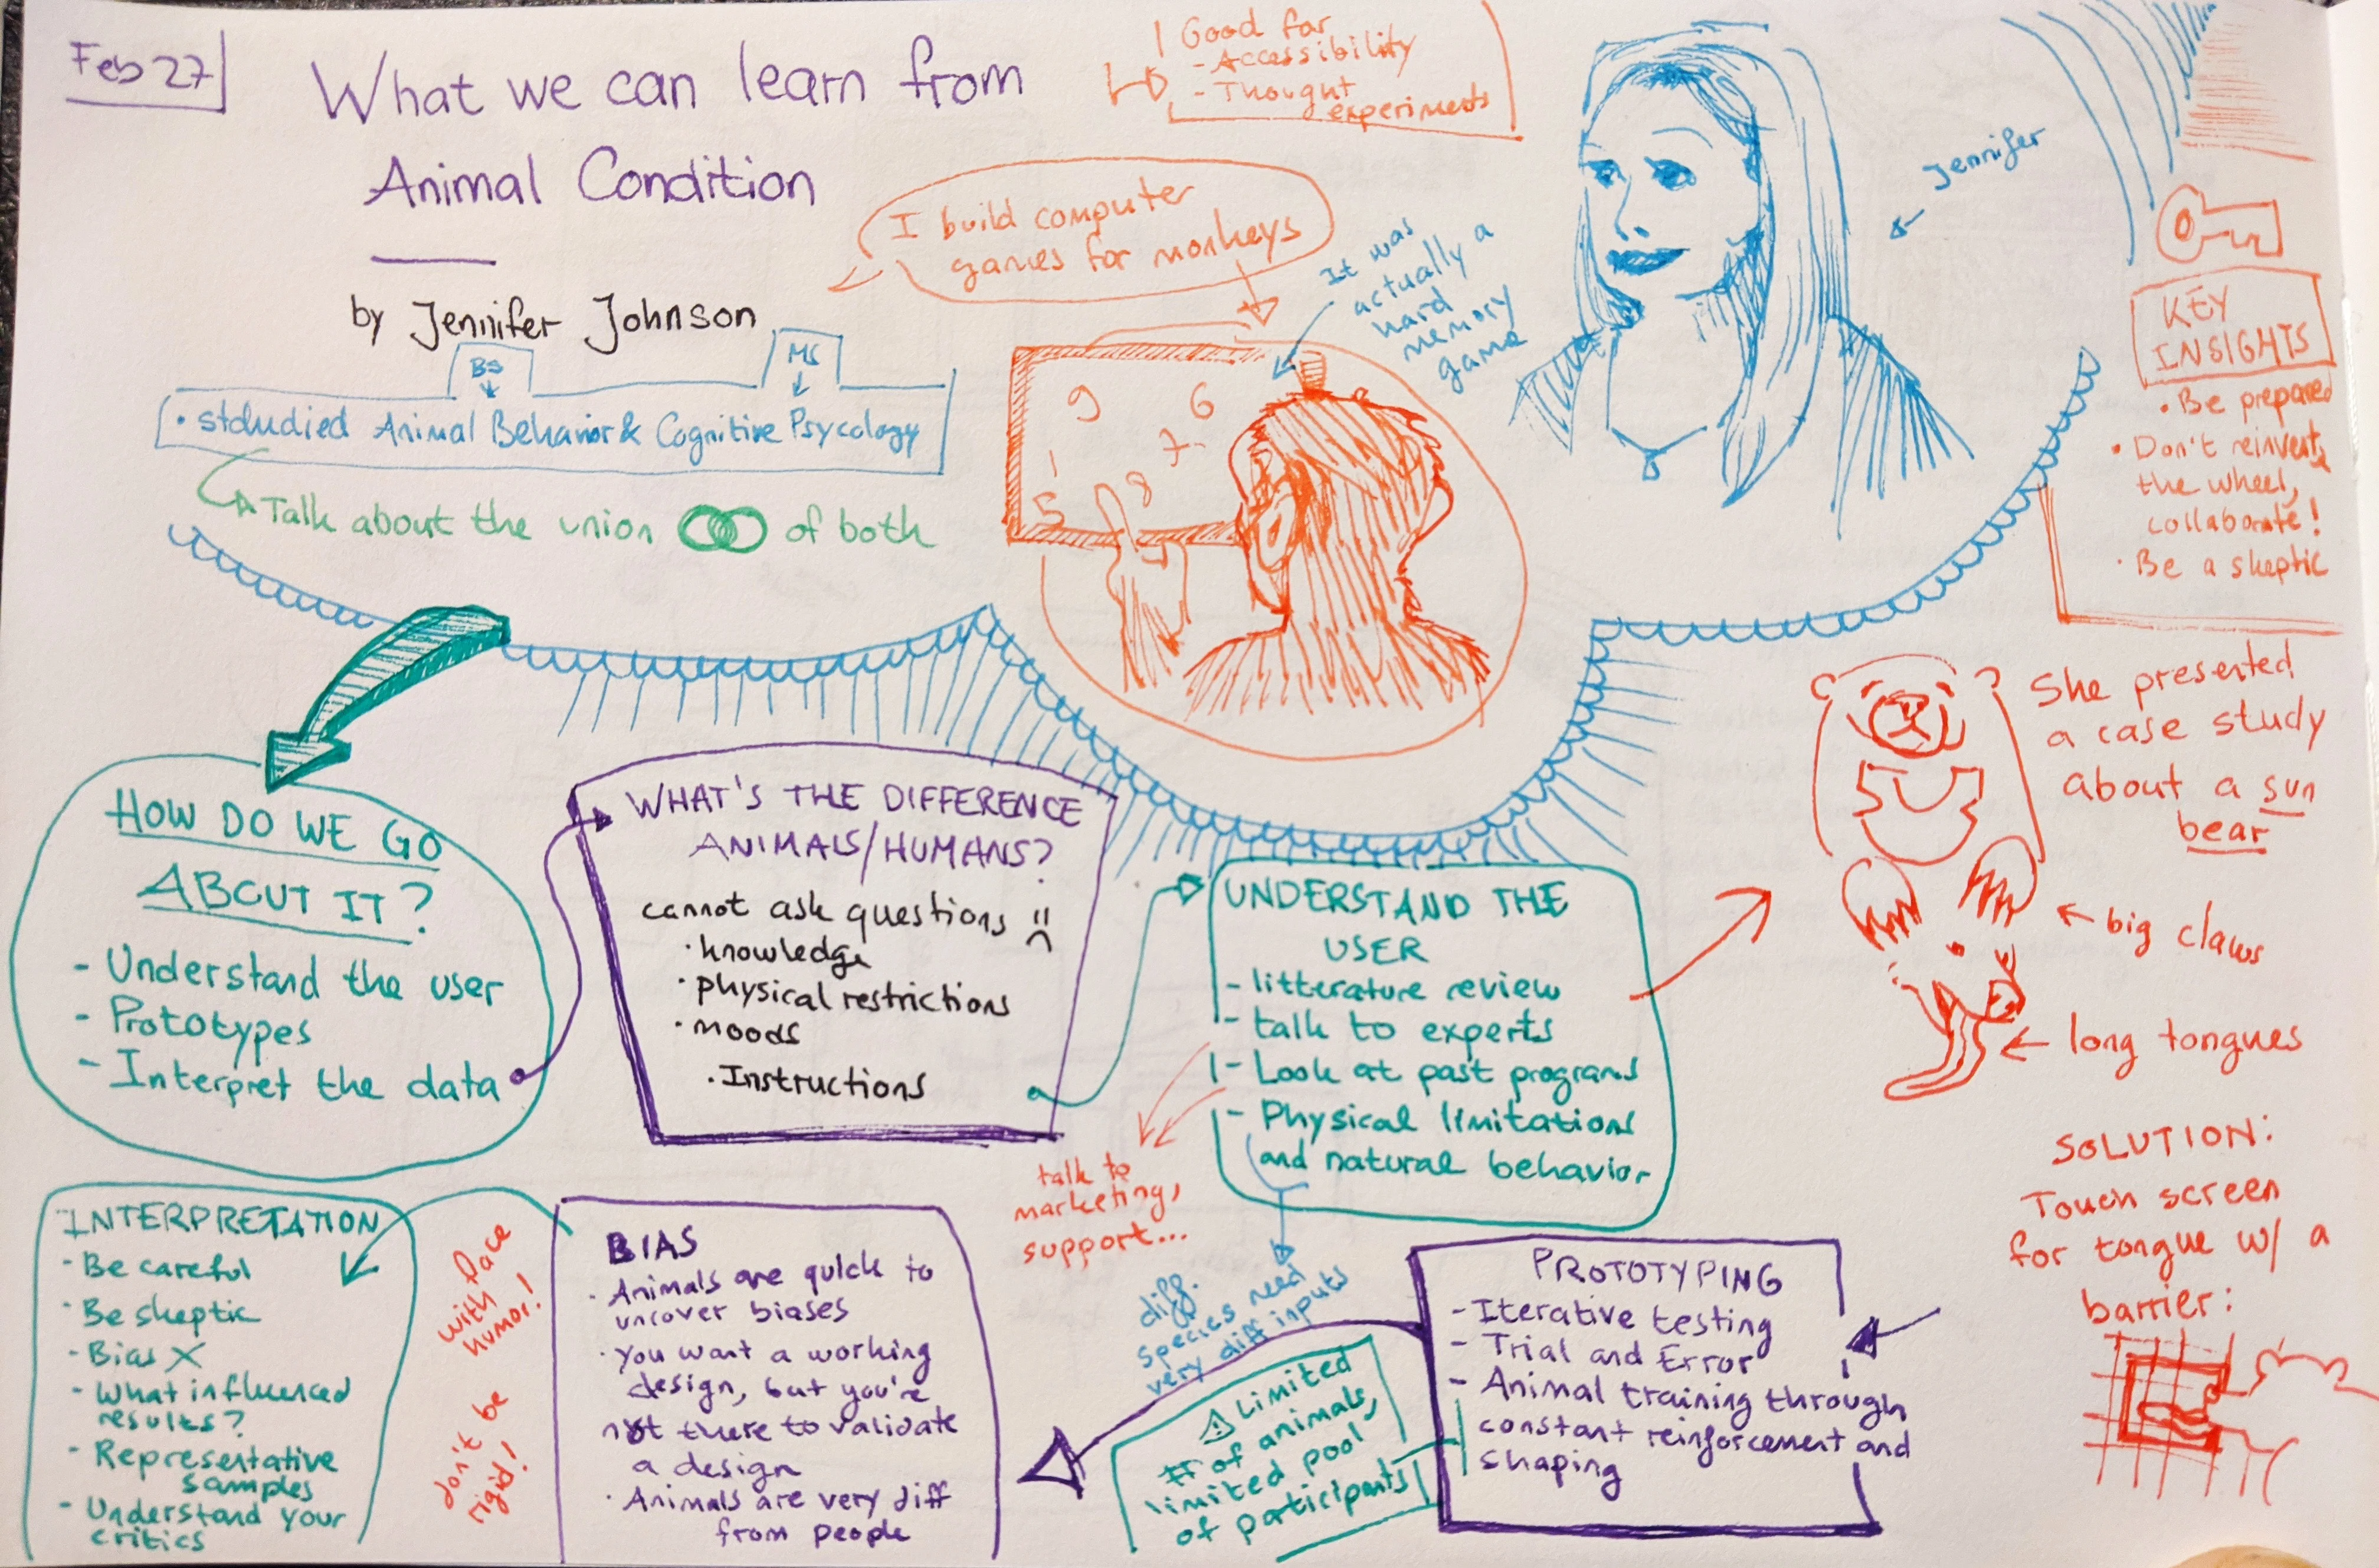 Feb 27
What we can learn from
Animal Condition
by Jennifer Johnson
BS
MS
• stdudied Animal Behavior & Cognitive Psycology
Talk about the union of both
! Good for
- Accessibility
- Thought
experiments
I build computer
games for monkeys
It was
actually a
hard
memory
game
9 6
7
1
5 8
Jennifer
KEY
INSIGHTS
• Be prepared
• Don't reinvent
the wheel,
collaborate!
• Be a skeptic
HOW DO WE GO
ABOUT IT?
- Understand the user
- Prototypes
- Interpret the data
WHAT'S THE DIFFERENCE
ANIMALS/HUMANS?
cannot ask questions
• knowledge
• physical restrictions
• moods
• Instructions
UNDERSTAND THE
USER
- litterature review
- talk to experts
- Look at past programs
- Physical limitations
and natural behavior
talk to
marketing,
support...
diff.
species need
very diff inputs
She presented
a case study
about a sun
bear
big claws
long tongues
SOLUTION:
Touch screen
for tongue w/ a
barrier:
PROTOTYPING
- Iterative testing
- Trial and Error
- Animal training through
constant reinforcement and
shaping
⚠ Limited
# of animals,
limited pool
of participants
BIAS
• Animals are quick to
uncover biases
• You want a working
design, but you're
not there to validate
a design
• Animals are very diff
from people
with face
humor!
don't be
rigid!
INTERPRETATION
- Be careful
- Be skeptic
- Bias X
- What influenced
results?
- Representative
samples
- Understand your
critics